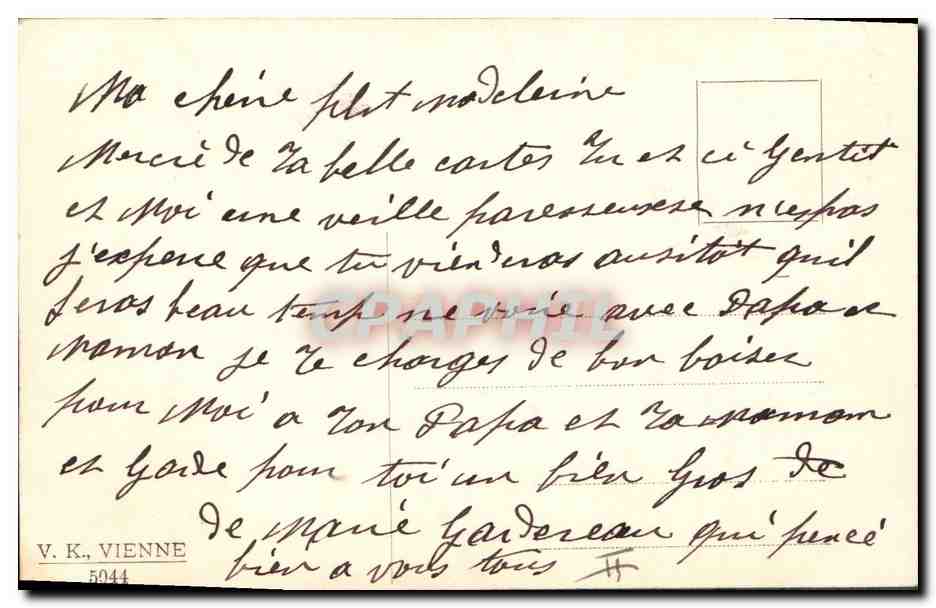 Ma cherie ptit Madeleine
Merci de Ta belle cartes Tu et ci Gentil
et Moi une veille paresseuse n'espas
j'espere que tu viendras ausitôt quil
feras beau temp ne voire avec Papa et
Maman je Te charges de bon baiser
pour Moi a Ton Papa et Ta maman
et Garde pour toi un bien Gros de
de Marie Gardereau qui pencé
bien a vous tous
CPAPHIL
V. K., VIENNE
5944